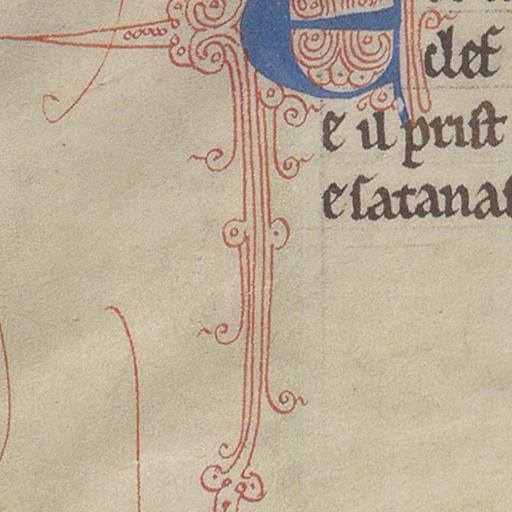 E
def
e il priſt
e ſatanaſ